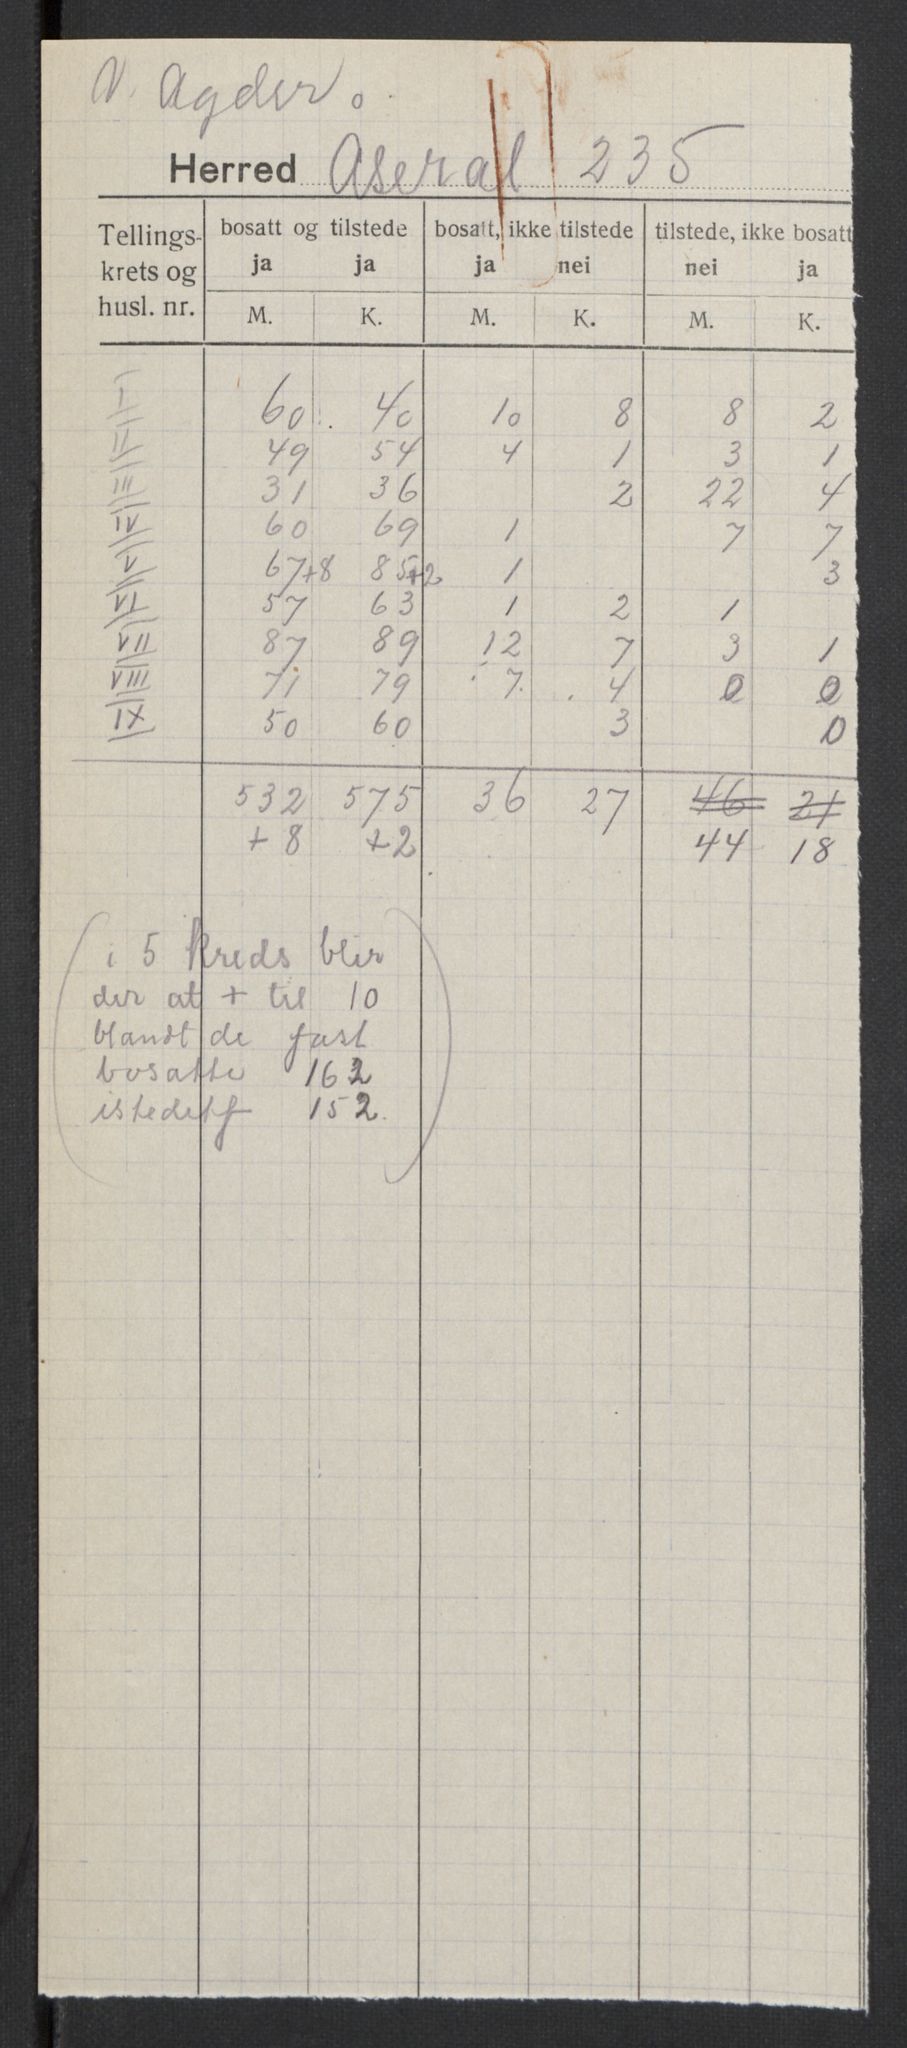 V. Agder.
Herred Aseral 235
Tellings-krets og husl. nr. | bosatt og tilstede | bosatt, ikke tilstede | tilstede, ikke bosatt
ja ja | ja nei | nei ja
M. K. | M. K. | M. K.
I 60 40 10 8 8 2
II 49 54 4 1 3 1
III 31 36 2 22 4
IV 60 69 1 7 7
V 67+8 85+2 1 3
VI 57 63 1 2 1
VII 87 89 12 7 3 1
VIII 71 79 7 4 0 0
IX 50 60 3 0
532 575 36 27 46 21
+8 +2 44 18
i 5 kreds blir
der at + til 10
blandt de fast
bosatte 162
istedetf 152.